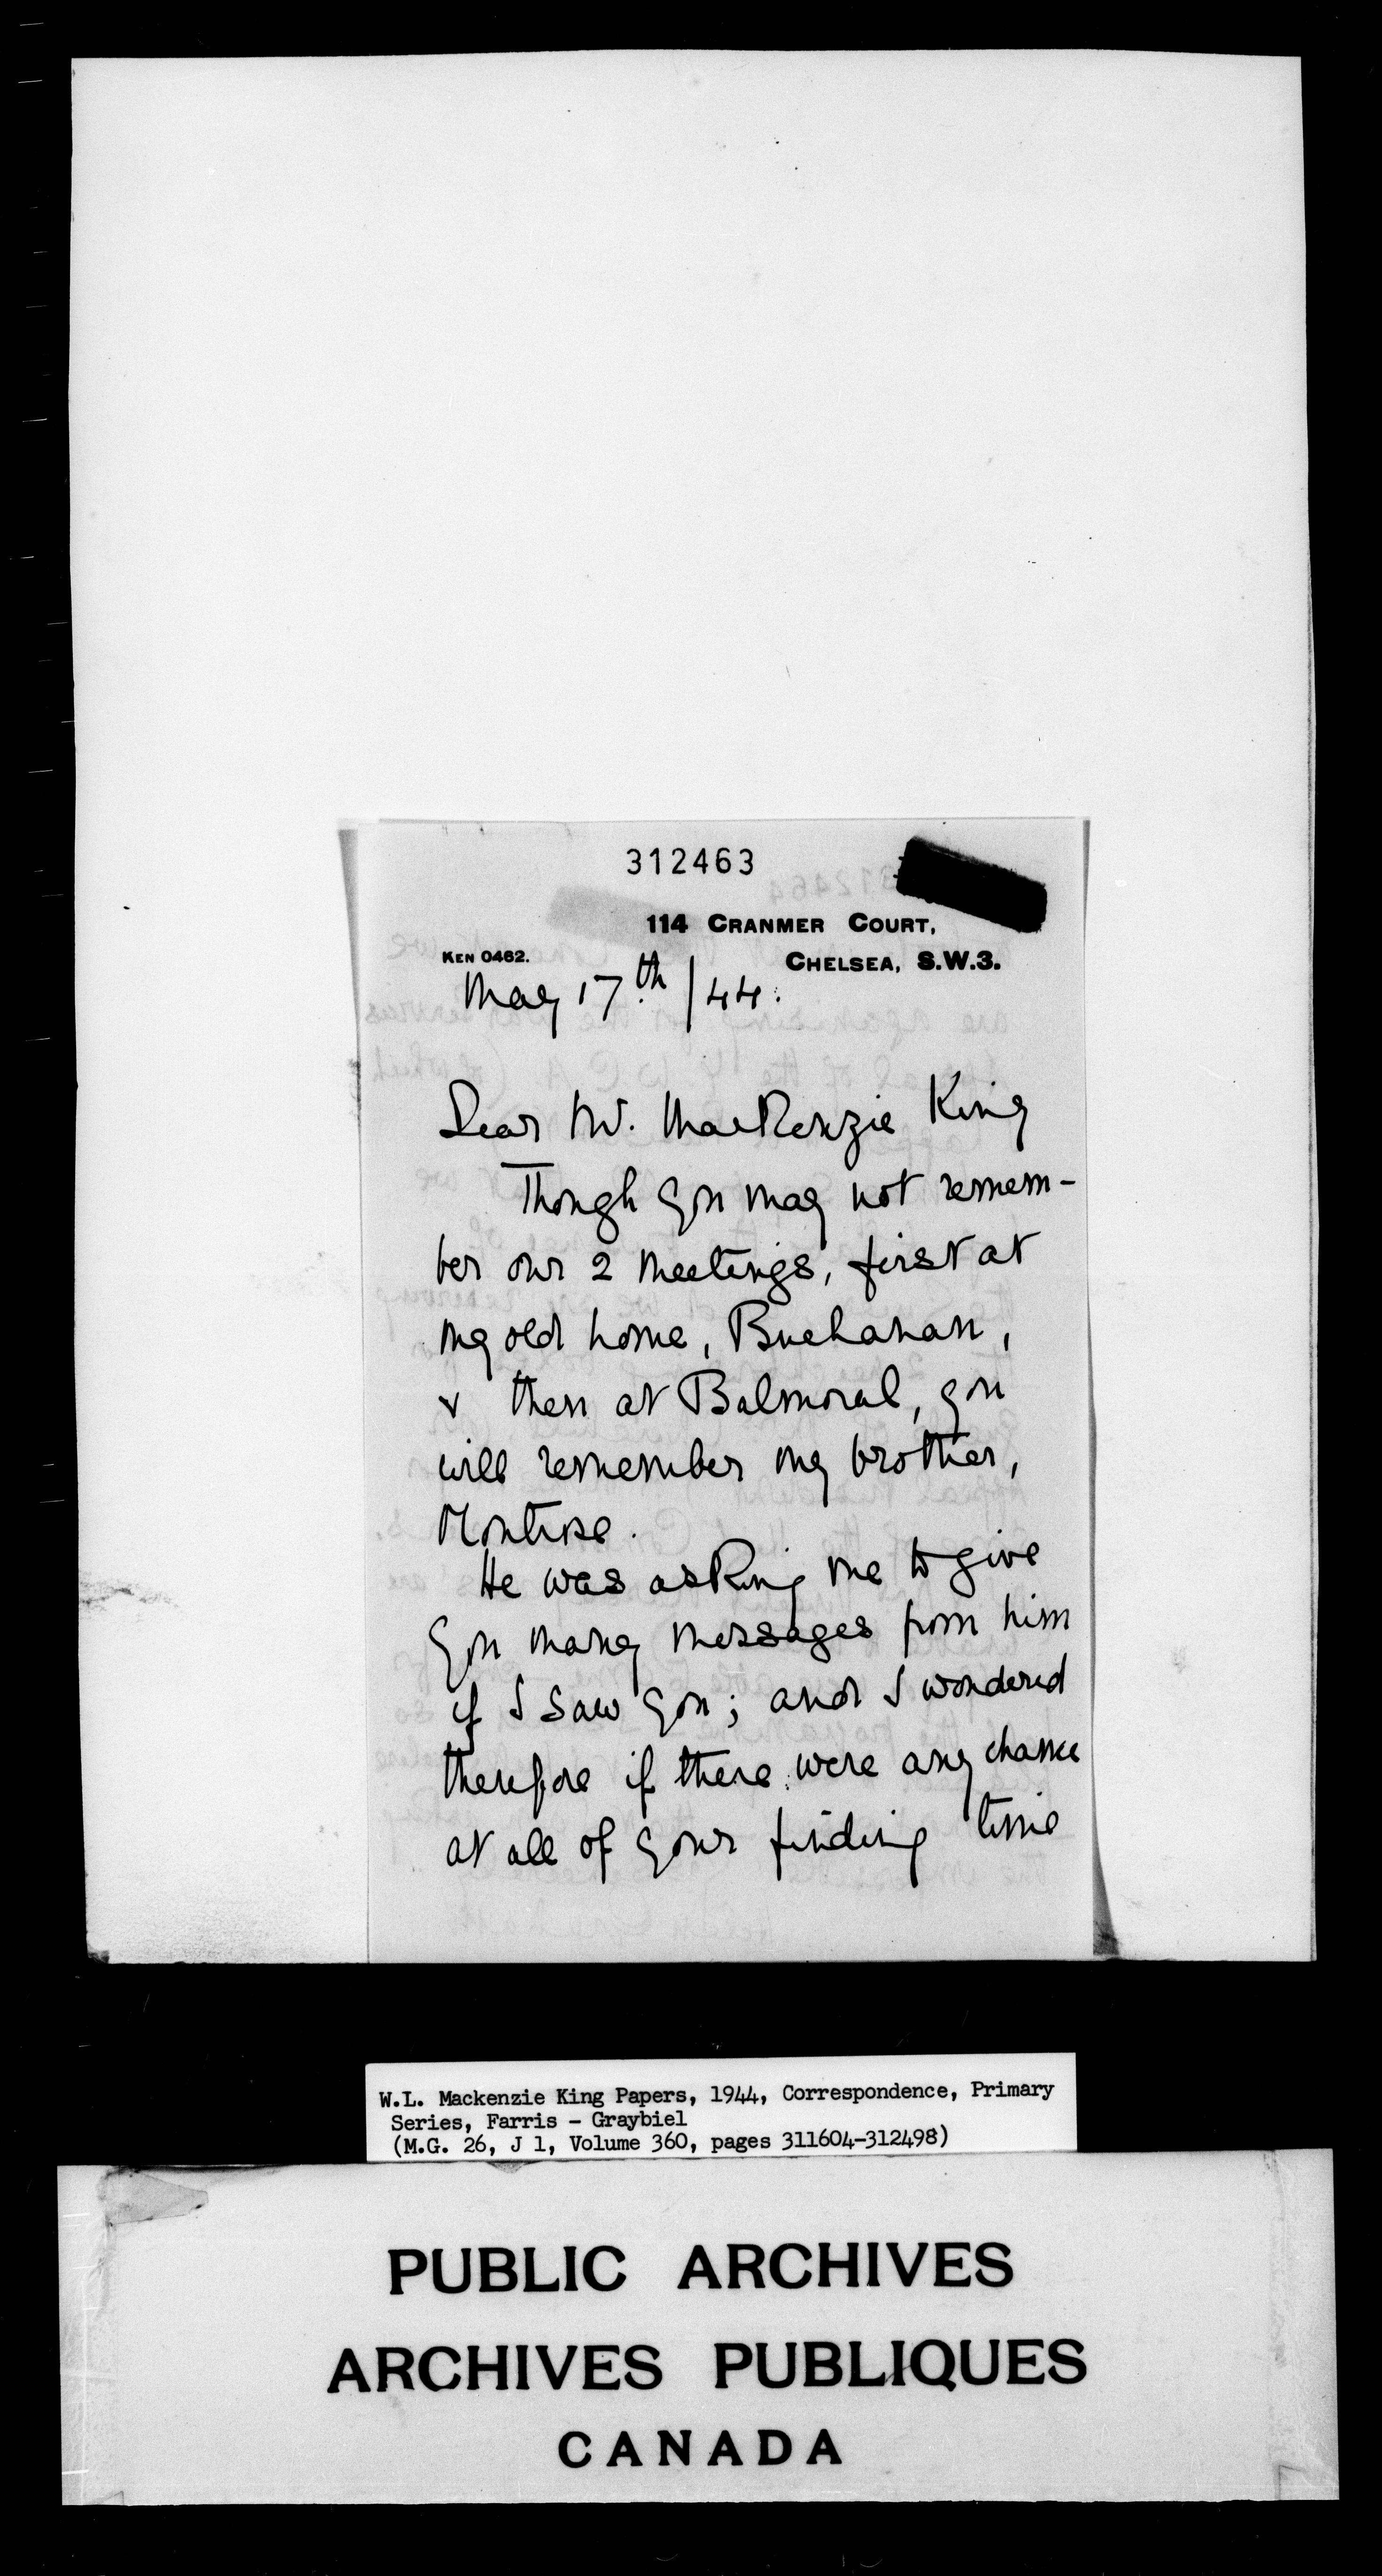 312463
114 CRANMER COURT,
KEN 0462.
CHELSEA, S.W.3.
May 17th/44.
Dear Mr. MacKenzie King
Though you may not remem-
ber our 2 meetings, first at
my old home, Buchanan,
& then at Balmoral, you
will remember my brother,
Montrose.
He was asking me to give
you many messages from him
if I saw you; and I wondered
therefore if there were any chance
at all of your finding time
W.L. Mackenzie King Papers, 1944, Correspondence, Primary
Series, Farris - Graybiel
(M.G. 26, J 1, Volume 360, pages 311604-312498)
PUBLIC ARCHIVES
ARCHIVES PUBLIQUES
CANADA